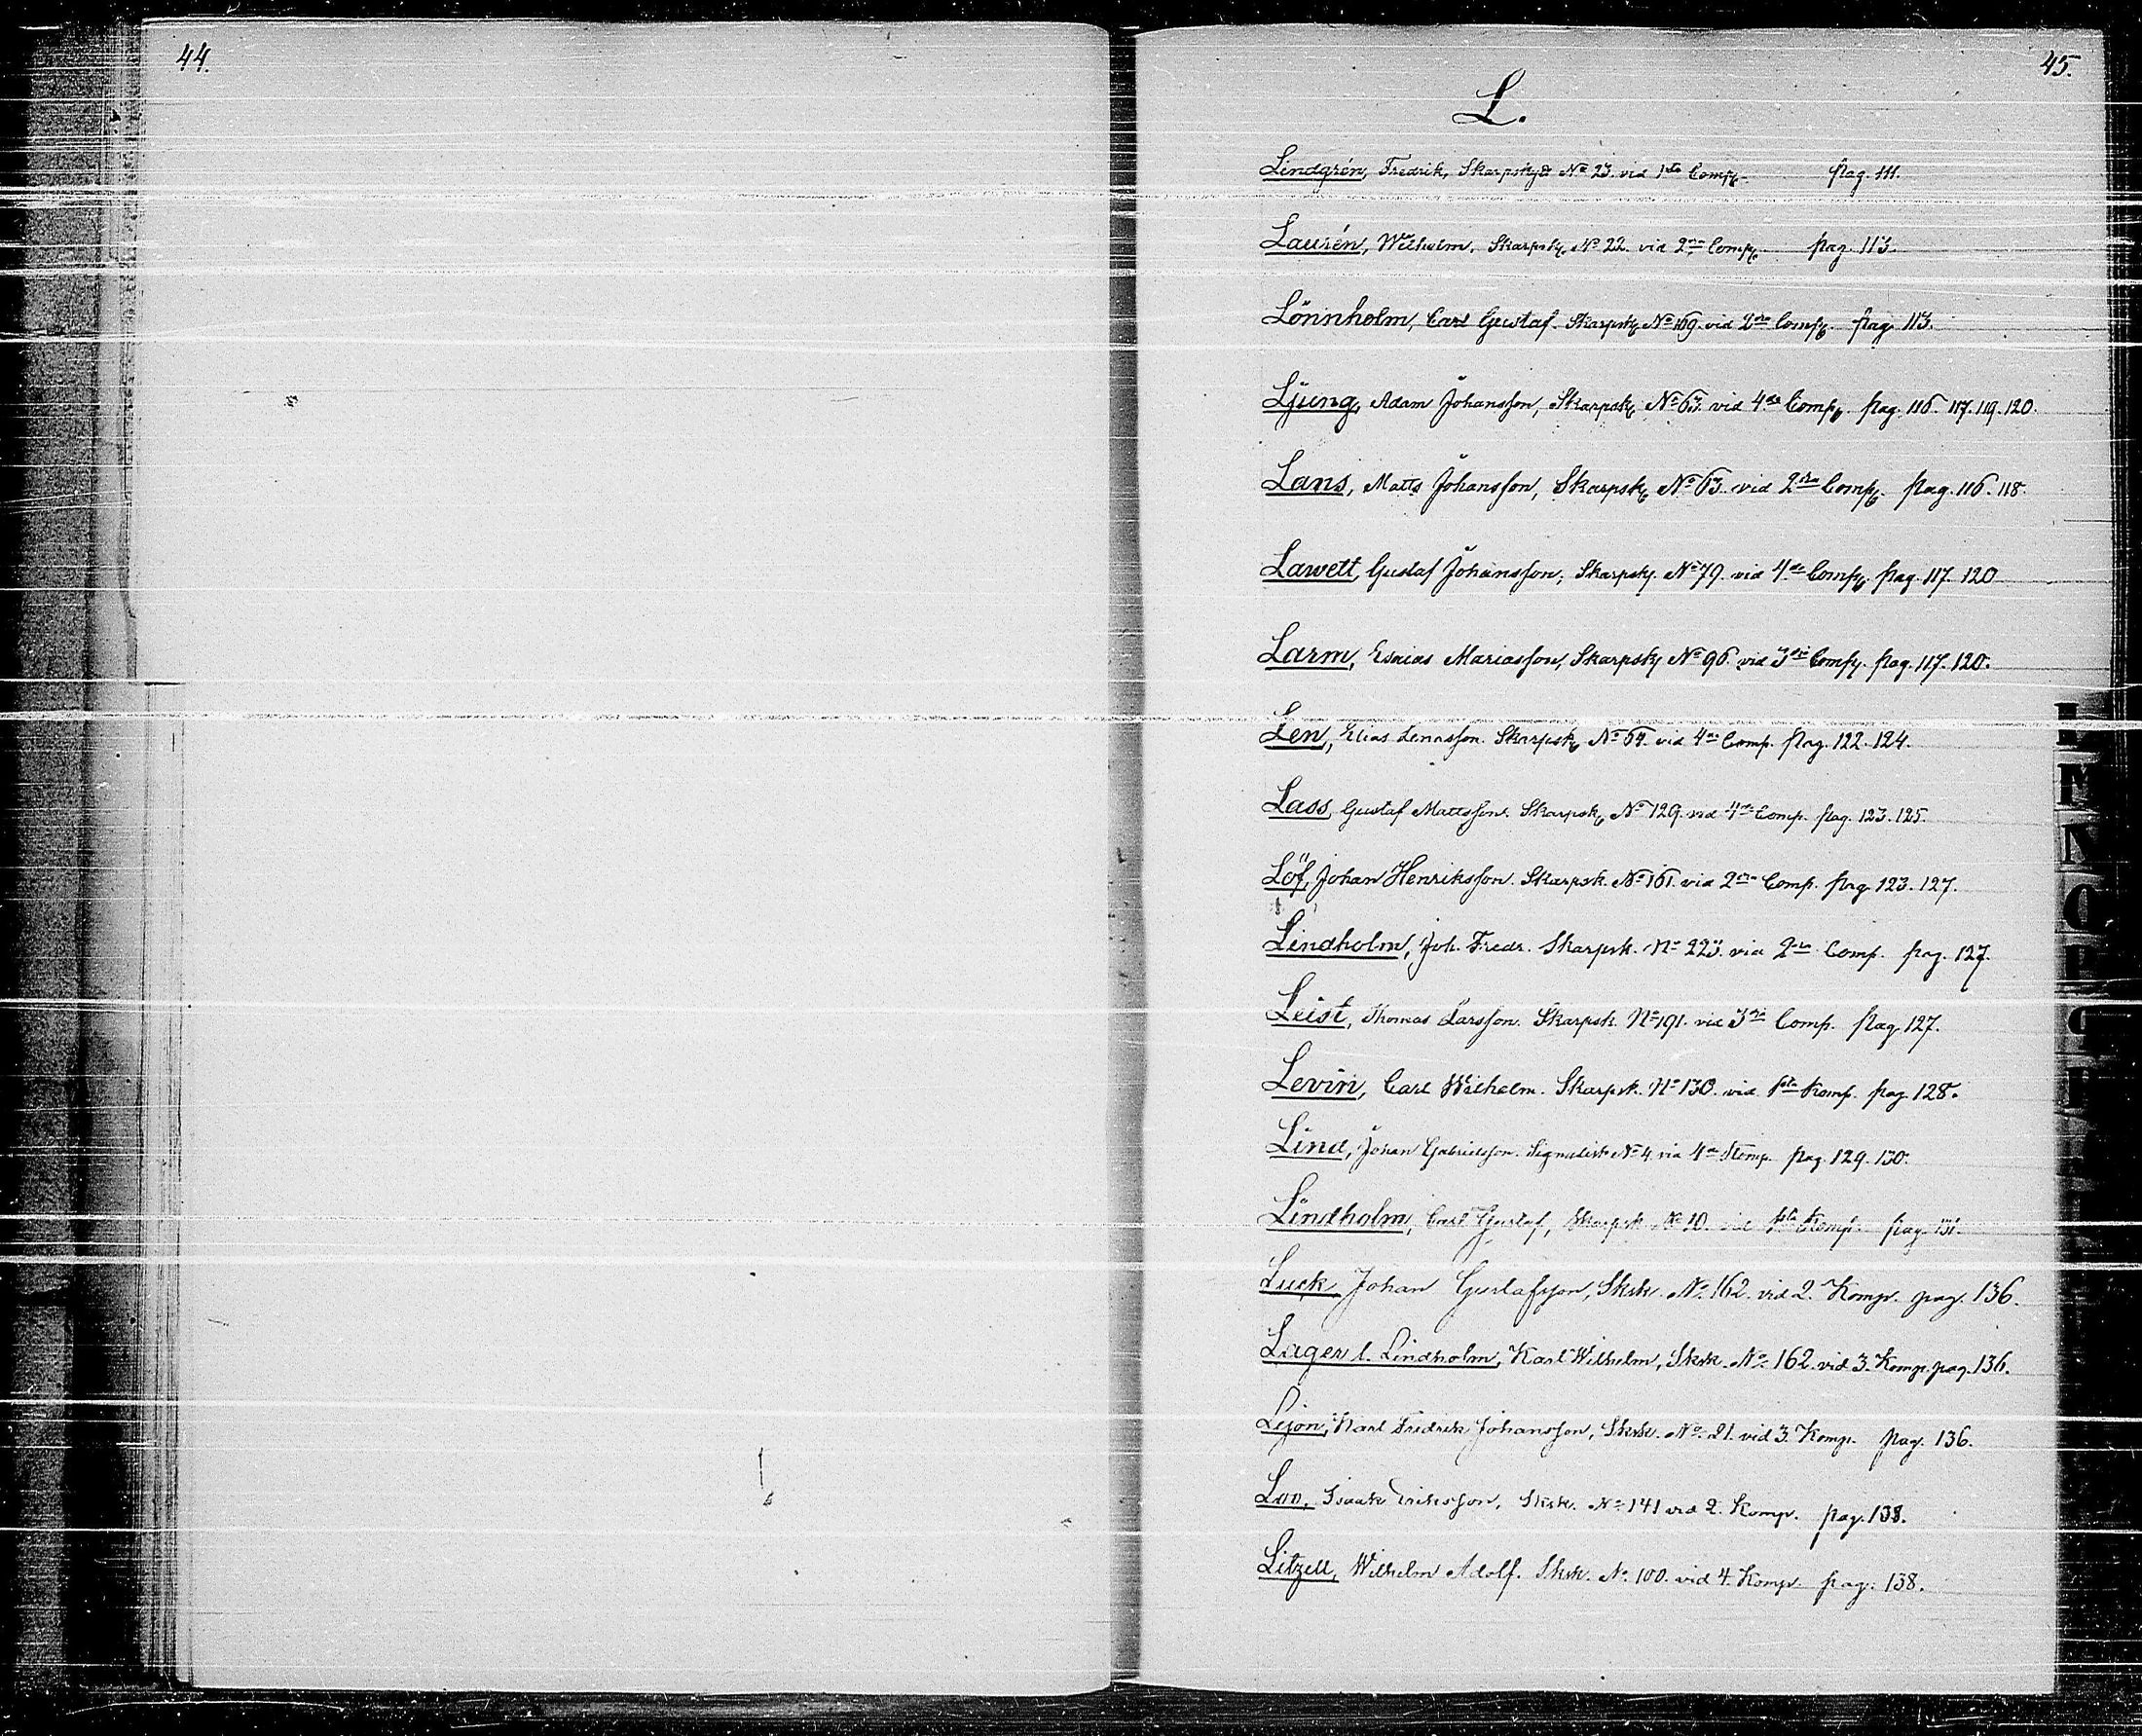 44.
45.
L.
Lindgrén, Fredrik, Skarpsky. No 23. vid 1sta Comp. pag. 111.
Laurén, Wilhelm, Skarpsk. No 22. vid 2ra Comp. pag. 113.
Lönnholm, Carl Gustaf. Skarpsk. No 169. vid 2ra Comp. pag. 113.
Ljung, Adam Johansson, Skarpsk. No 63. vid 4de Comp. pag. 116. 117. 119. 120.
Lans, Matts Johansson, Skarpsk. No 63. vid 2ra Comp. pag. 116. 118.
Lawett, Gustaf Johansson, Skarpsk. No 79. vid 4de Comp. pag. 117. 120
Larm, Esaias Mariasson, Skarpsk. No 96. vid 3die Comp. pag. 117. 120.
Len, Elias Lenasson. Skarpsk. No 64. vid 4de Comp. pag. 122. 124.
Lass, Gustaf Mattsson. Skarpsk. No 129. vid 4de Comp. pag. 123. 125.
Löf, Johan Henriksson. Skarpsk. No 161. vid 2ra Comp. pag. 123. 127.
Lindholm, Joh. Fredr. Skarpsk. No 223. vid 2ra Comp. pag. 127.
Leist, Thomas Larsson. Skarpsk. No 191. vid 3die Comp. pag. 127.
Levin, Carl Wilhelm. Skarpsk. No 130. vid 1sta Komp. pag. 128.
Lind, Johan Gabrielsson. Signalist No 4. vid 4de Komp. pag. 129. 130.
Lindholm, Carl Gustaf, Skarpsk. No 10. vid 1sta Komp. pag. 131.
Luck Johan Gustafsson, Sksk. No 162. vid 2. Komp. pag. 136.
Lager l. Lindholm, Karl Wilhelm, Sksk. No 162. vid 3. Komp. pag. 136.
Lejon, Karl Fredrik Johansson, Sksk. No 21. vid 3. Komp. pag. 136.
Loo, Isaak Eriksson, Sksk. No 141 vid 2. Komp. pag. 138.
Litzell, Wilhelm Adolf. Sksk. No 100. vid 4. Komp. pag. 138.
L
M
N
O
P
Q
R